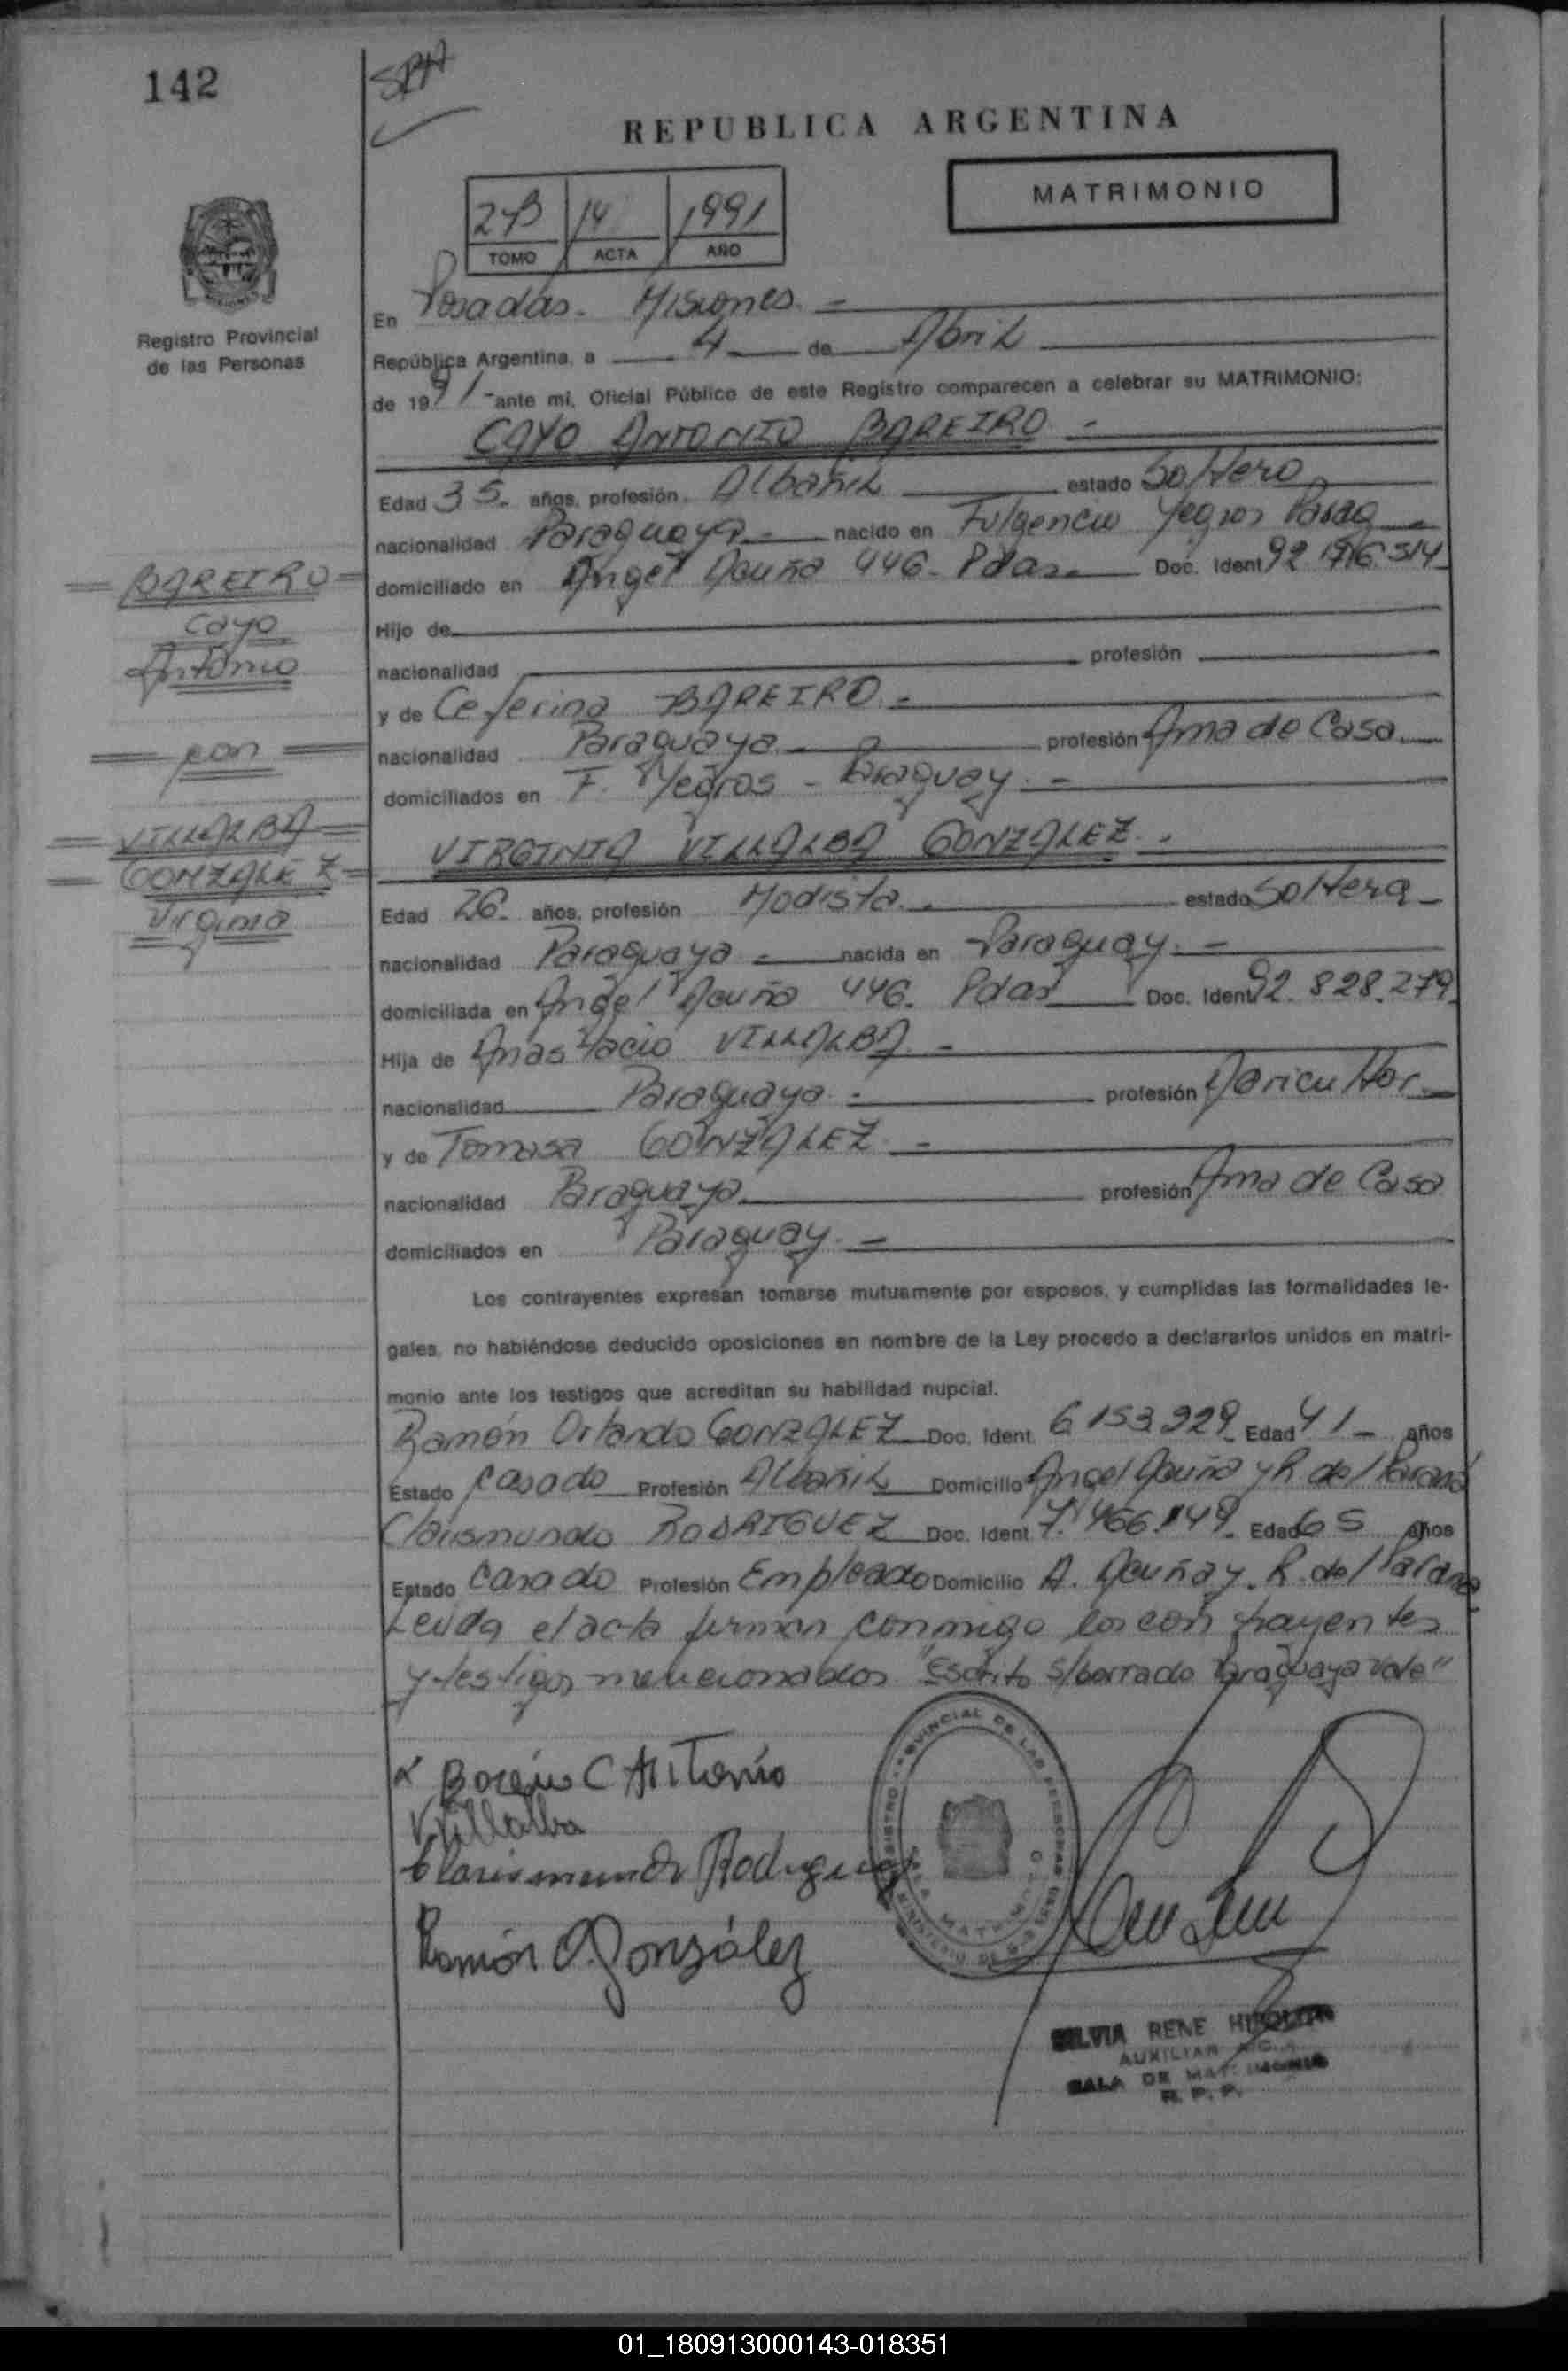 142
SRH
REPUBLICA ARGENTINA
MATRIMONIO
2ºB 14 1991
TOMO ACTA AÑO
Registro Provincial
de las Personas
En Posadas - Misiones -
República Argentina, a 4 de Abril
de 1991 - ante mi, Oficial Público de este Registro comparecen a celebrar su MATRIMONIO:
CAYO ANTONIO BAREIRO -
Edad 35 - años, profesión Albañil estado Soltero
nacionalidad Paraguaya - nacido en Fulgencio Yegros Parag -
domiciliado en Angel Acuña 446 - Pdas - Doc. Ident 92.716.514
Hijo de
nacionalidad profesión
y de Ceferina BAREIRO -
nacionalidad Paraguaya - profesión Ama de Casa
domiciliados en F. Yegros - Paraguay -
BAREIRO
Cayo
Antonio
con
VILLALBA
GONZALEZ
Virginia
VIRGINIA VILLALBA GONZALEZ -
Edad 26 - años, profesión Modista - estado Soltera -
nacionalidad Paraguaya - nacida en Paraguay -
domiciliada en Angel Acuña 446. Pdas Doc. Ident 92.828.279
Hija de Anastacio VILLALBA -
nacionalidad Paraguaya - profesión Agricultor
y de Tomasa GONZALEZ -
nacionalidad Paraguaya profesión Ama de Casa
domiciliados en Paraguay -
Los contrayentes expresan tomarse mutuamente por esposos, y cumplidas las formalidades le-
gales, no habiéndose deducido oposiciones en nombre de la Ley procedo a declararlos unidos en matri-
monio ante los testigos que acreditan su habilidad nupcial.
Ramón Orlando GONZALEZ Doc. Ident. 6153929 Edad 41 - años
Estado Casado Profesión Albañil Domicilio Angel Acuña y R. del Paraná
Clarismundo RODRIGUEZ Doc. Ident 7.466.149 Edad 65 años
Estado Casado Profesión Empleado Domicilio A. Acuña y R. del Paraná
Leida el acta firman conmigo los contrayentes
y testigos mencionados "Escrito s/borrado Paraguaya vale"
Bareiro C Antonio
V Villalba
Clarismundo Rodriguez
Ramón O. González
SILVIA RENE HIPOLITA
AUXILIAR
SALA DE MATRIMONIO
R. P. P.
01_180913000143-018351